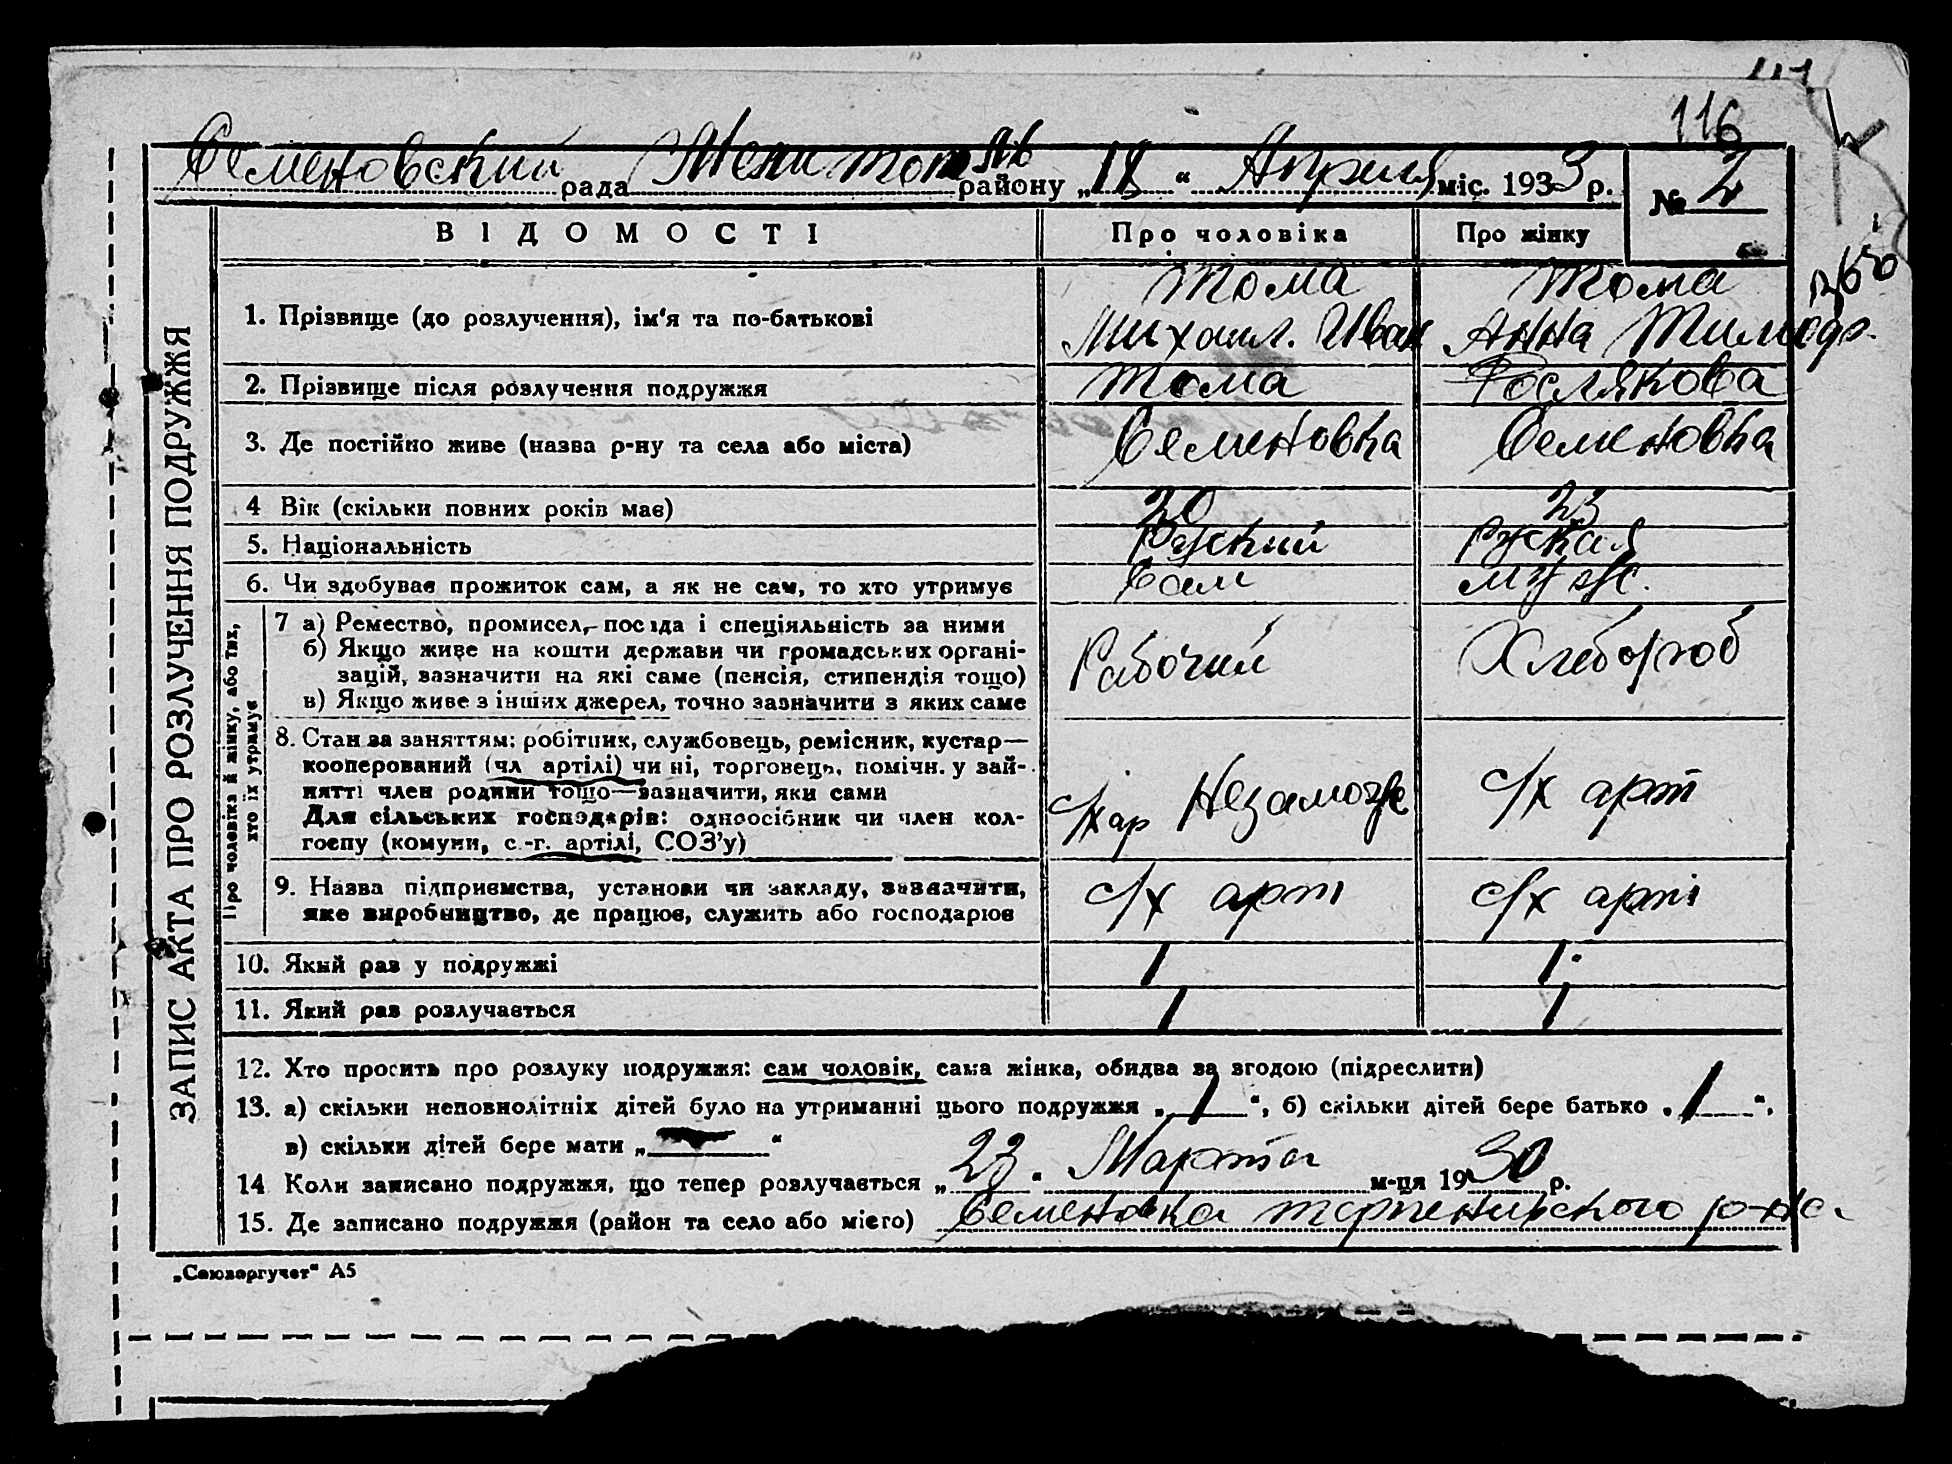 116
Семеновский рада Мелитоп району „18“ Апреля міс. 1933 р. № 2
ВІДОМОСТІ Про чоловіка Про жінку
Тома Тома
1. Прізвище (до розлучення), ім'я та по-батькові Михаил. Иван Анна
2. Прізвище після розлучення подружжя Тома Рослякова
3. Де постійно живе (назва р-ну та села або міста) Семеновка Семеновка
4 Вік (скільки повних років має) 20 23
5. Національність Руский Руская
6. Чи здобуває прожиток сам, а як не сам, то хто утримує Сам муж.
7 а) Ремество, промисел, посада і спеціяльність за ними
б) Якщо живе на кошти держави чи громадських органі-
зацій, зазначити на які саме (пенсія, стипендія тощо) Рабочий Хлебороб
в) Якщо живе з інших джерел, точно зазначити з яких саме
8. Стан за заняттям: робітник, службовець, ремісник, кустар—
кооперований (чл артілі) чи ні, торговець, помічн. у зай-
нятті член родини тощо—зазначити, яки сами
Для сільських господарів: одноосібник чи член кол- с/х ар Незамож с/х арт
госпу (комуни, с.-г. артілі, СОЗ'у)
9. Назва підприємства, установи чи закладу, зазначити, с/х арт с/х арт
яке виробництво, де працює, служить або господарює
10. Який раз у подружжі 1 1
11. Який раз розлучається 1 1
12. Хто просить про розлуку подружжя: сам чоловік, сама жінка, обидва за згодою (підреслити)
13. а) скільки неповнолітніх дітей було на утриманні цього подружжя „1“, б) скільки дітей бере батько „1“,
в) скільки дітей бере мати „ “
14 Коли записано подружжя, що тепер розлучається „23“ Марта м-ця 1930 р.
15. Де записано подружжя (район та село або місто) Семеновка р-на
„Союзоргучет“ А5
ЗАПИС АКТА ПРО РОЗЛУЧЕННЯ ПОДРУЖЖЯ
Про чоловіка й жінку, або тих,
хто їх утримує